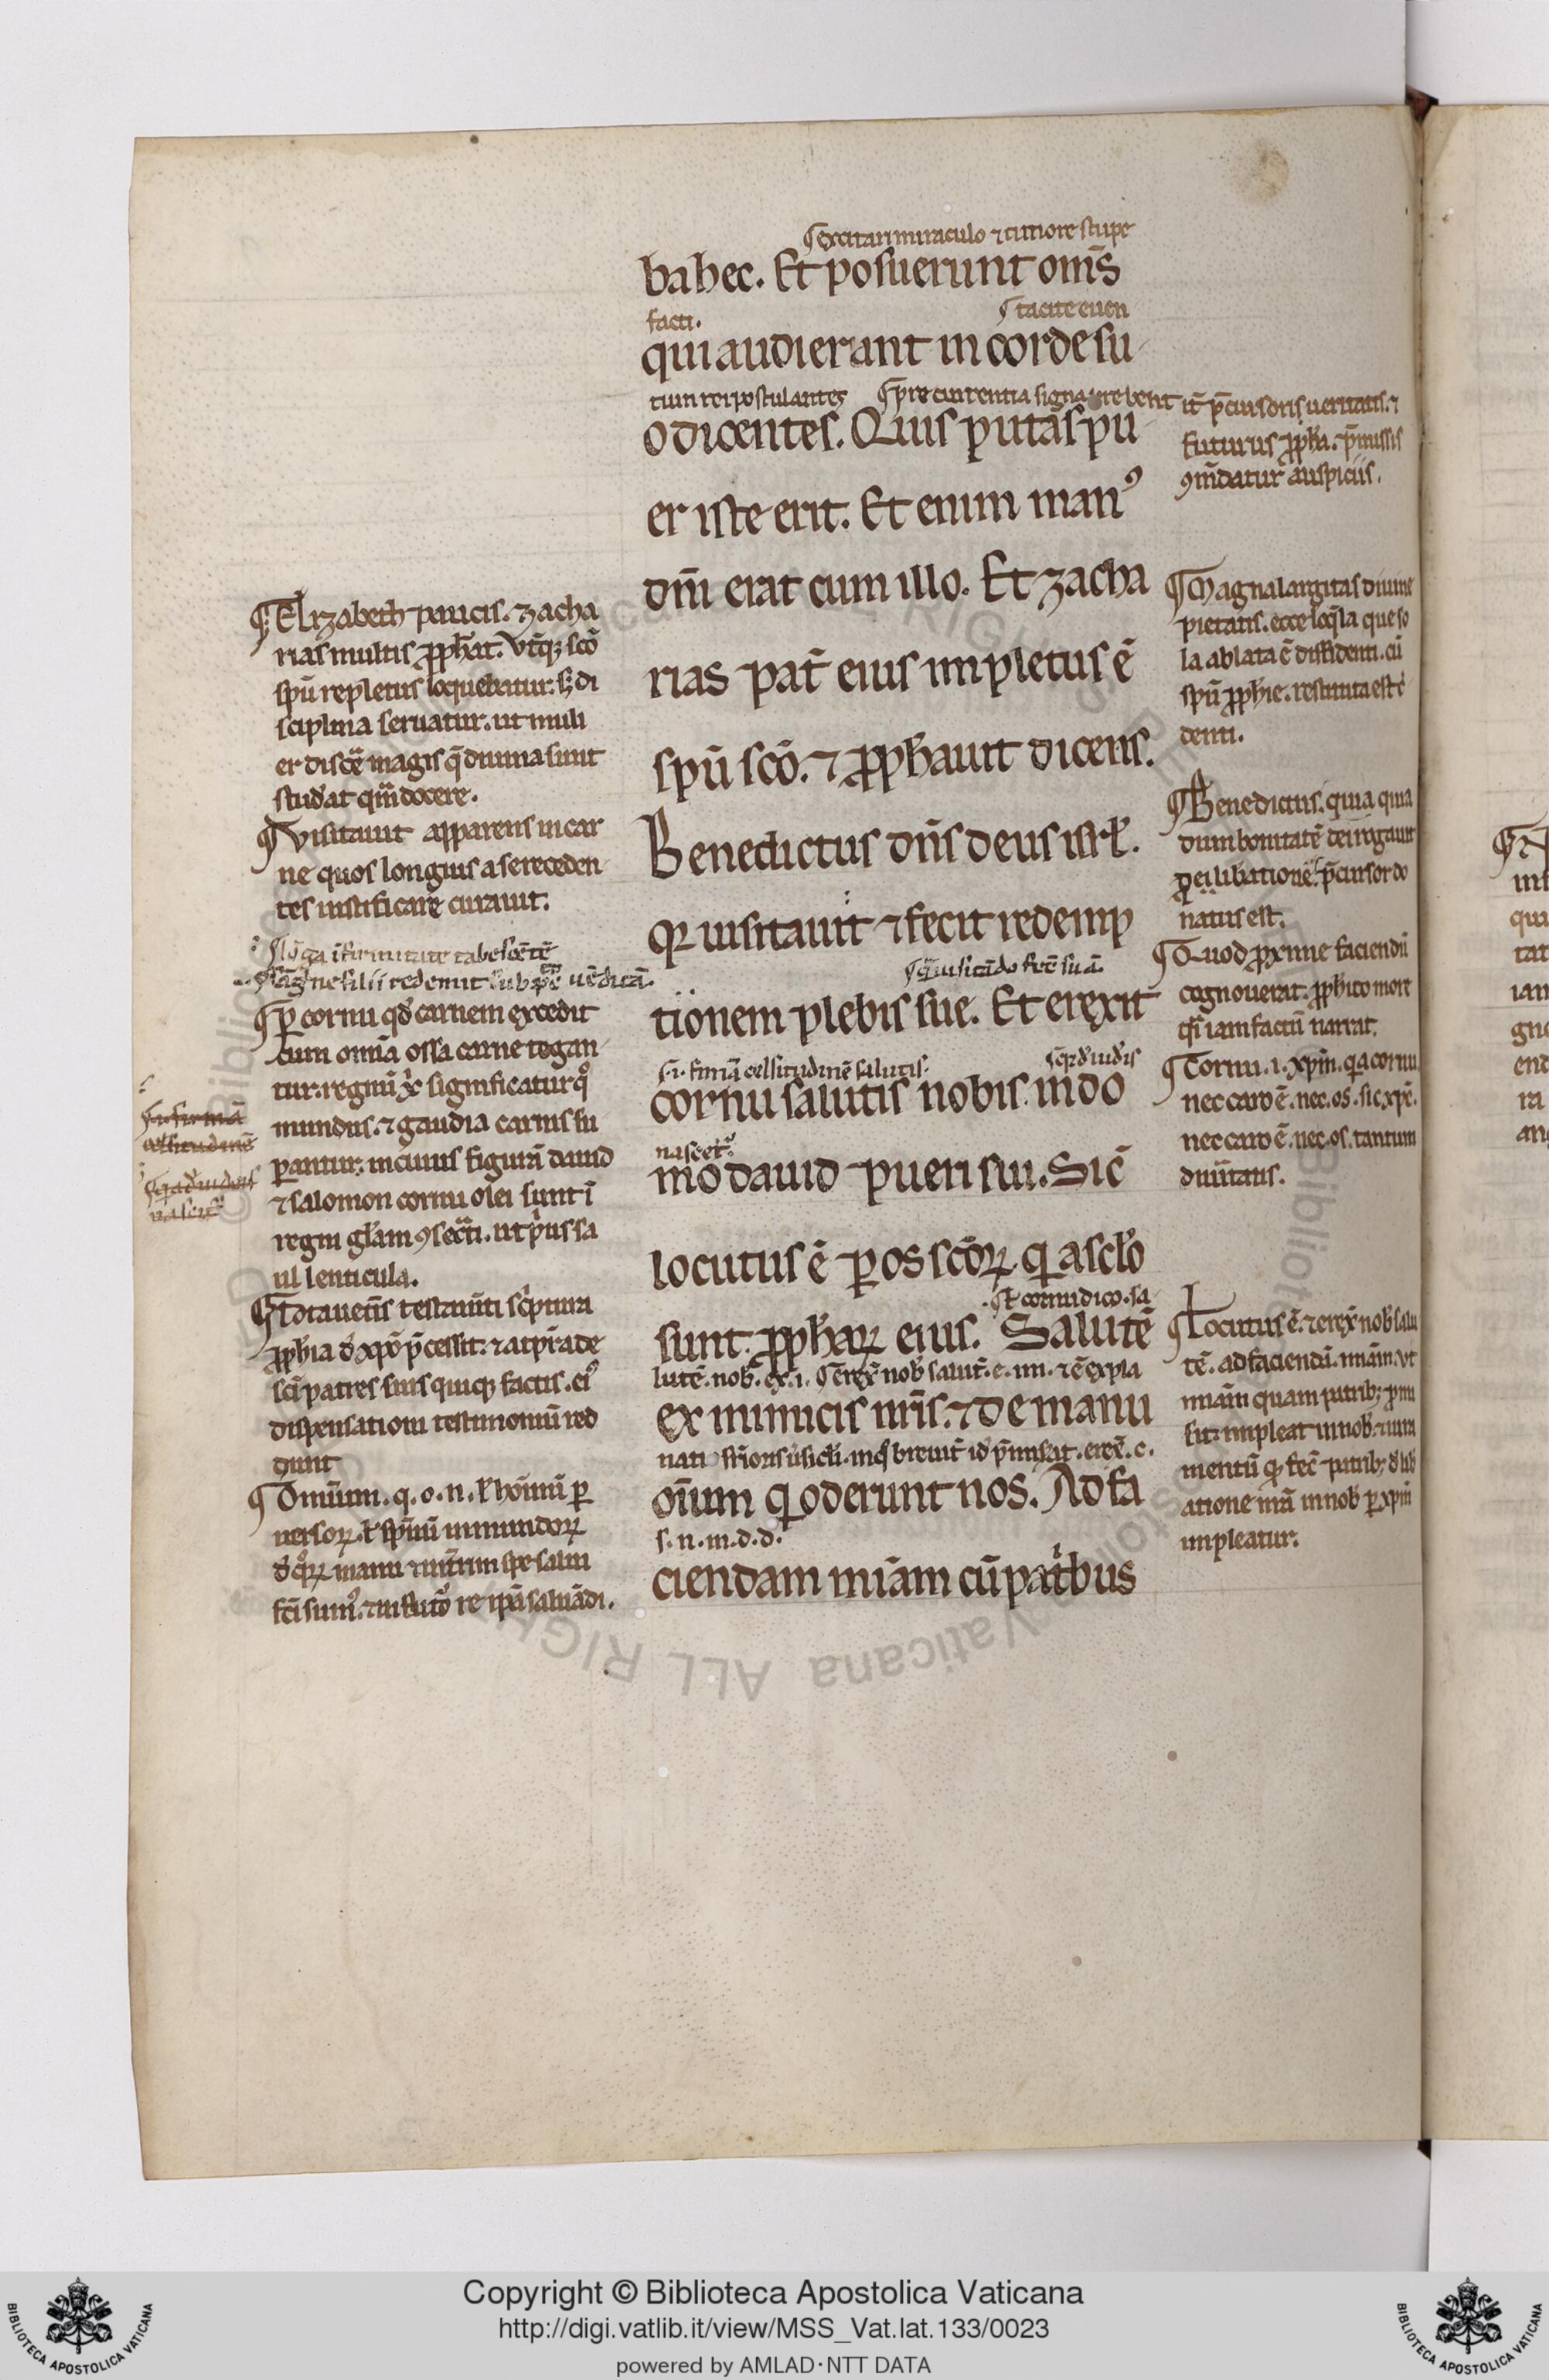 ¶ excitari miraculo ⁊ timore stupe
ba hec. Et posuerunt om̄s
facti.
¶ tacite euen
qui audierant in corde su
tum rei postulantes
¶ precurrentia signa prebent it̄ p̄cursoris ueritatis. ⁊
o dicentes. Quis putas pu
futurus ꝓph̄a. p̄missis
ꝯm̄datur auspiciis.
er iste erit. Et enim manꝰ
dn̄i erat cum illo. Et zacha
rias pat̄ eius impletus ē
spū scō. ⁊ ꝓph̄auit dicens.
Benedictus dn̄s deus isrl̄.
qꝛ uisitauit ⁊ fecit redemp
tionem plebis sue. Et erexit
¶ .i. firmā celsitudinē salutis.
cornu salutis nobis. in do
nascet̄.
mo dauid pueri sui. Sic̄
locutus ē ꝑ os scōꝝ. q̄ a sclo
sunt. ꝓph̄aꝝ eius. Salutē
¶ ł cornu dico. sa
lutē. nob̄. ex. i.
ex inimicis nr̄is. ⁊ de manu
oīum q̄ oderunt nos. Ad fa
s. n. m. d. d.
ciendam miam̄ cū patribus
¶ Elizabeth paucis. zacha
rias multis ꝓph̄at. vtq̄ꝫ scō
spū repletus loquebatur. sꝫ di
sciplina seruatur. ut muli
er discē magis q̄ diuina sunt
studeat qm̄ docere.
¶ Visitauit apparens in car
ne quos longius a se receden
tes iustificare curauit.
¶ lōga īfirmitate tabescētē
¶ ꝑ cornu qd̄ carnem excedit
cum omīa ossa carne tegan
tur. regnū xp̄i significatur qͦ
mundus. ⁊ gaudia carnis su
ꝑantur. in cuius figurā dauid
⁊ salomon cornu olei sunt ī
regni gl̄am ꝯsecrati. ut prius sa
ul lenticula.
¶ Tota ueteris testamti scriptura
ꝓph̄ia de xpō p̄cessit. ⁊ at p̄r ade
sc̄i patres suis quiqꝫ factis. eiꝰ
dispensationi testimoniū red
dunt
¶ Omium. q. o. n. ł hoīnū ꝑ
uersoꝝ. ł spirituū inmundoꝝ
de qͦꝝ manu ⁊ interim spe salui
fc̄i sumꝰ. ⁊ in futuro re ipa saluādi.
¶ Magna largitas diuine
pietatis. ecce loq̄la que so
la ablata ē diffidenti. cū
spū ꝓph̄ie. restituta est c̄
denti.
¶ Benedictus. quia quia
dum bonitatē dei rigauit
ꝓ ei libationē. p̄cursor do
natus est.
¶ Quod ꝓxime faciendū
cognouerat. ꝓph̄ico more
q̄si iam factū narrat.
¶ Cornu .i. xp̄m. q̄a cornu
nec caro ē. nec os. sic xp̄c.
nec caro ē. nec os. tantum
diuinitatis.
¶ Locutus ē. ⁊ erex̄ nob̄ salu
tē. ad faciendā. miam̄. ut
miam̄ quam patribꝫ ꝓmi
sit. impleat in nob̄. ⁊ iura
mentū q̄ fec̄ patribꝫ de lib̄
atione nr̄a in nob̄ ꝑ xp̄m
impleatur.
Copyright © Biblioteca Apostolica Vaticana
http://digi.vatlib.it/view/MSS_Vat.lat.133/0023
powered by AMLAD·NTT DATA
BIBLIOTECA APOSTOLICA VATICANA
BIBLIOTECA APOSTOLICA VATICANA